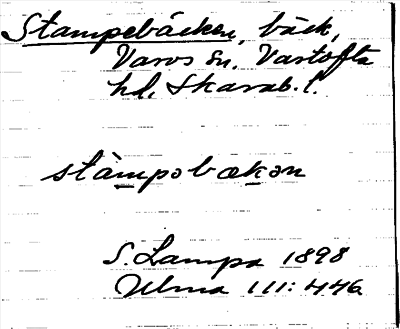 Stampebäcken, bäck,
Varvs sn. Vartofta
hd. Skarab. l.
stàmpəbækən
S. Lampa 1898
Ulma 111: 446